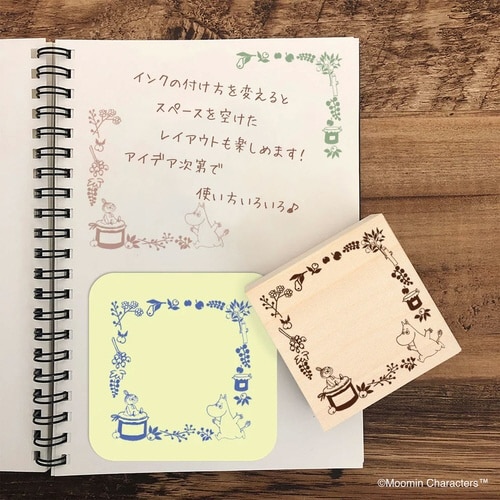 インクの付け方を変えると
スペースを空けた
レイアウトも楽しめます!
アイデア次第で
使い方いろいろ♪
©Moomin Characters™